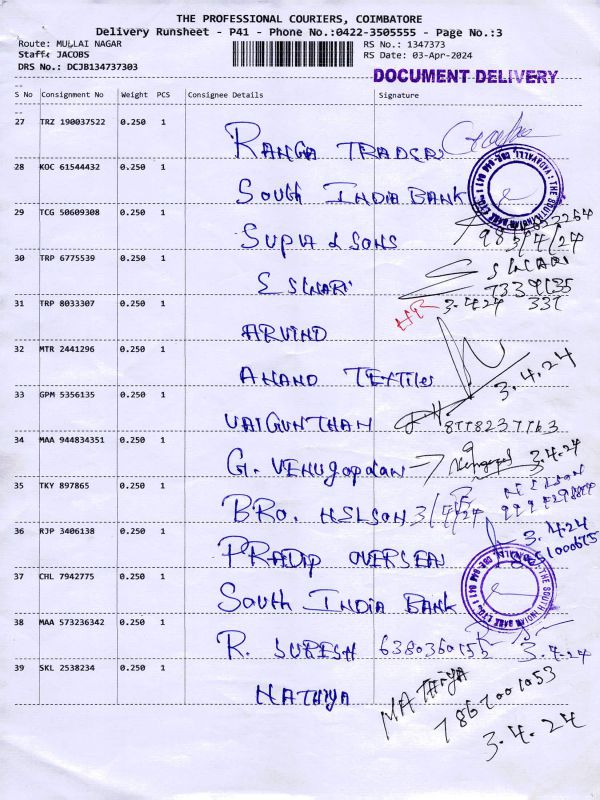 THE PROFESSIONAL COURIERS, COIMBATORE
Delivery Runsheet - P41 - Phone No.:0422-3505555 - Page No.:3
Route: MULLAI NAGAR RS No.: 1347373
Staff: JACOBS RS Date: 03-Apr-2024
DRS No.: DCJB134737303
DOCUMENT DELIVERY
S No Consignment No Weight PCS Consignee Details Signature
27 TRZ 190037522 0.250 1 RANGA TRADERS
28 KOC 61544432 0.250 1 South INDIA BANK
29 TCG 50609308 0.250 1 SUPIA & SONS 3/4/24
30 TRP 6775539 0.250 1 ESWARI ESWARI
3.4.24
31 TRP 8033307 0.250 1 ARVIND
32 MTR 2441296 0.250 1 ANAND TEXTiles 3.4.24
33 GPM 5356135 0.250 1 VAIGUNTHAN 8778237763
34 MAA 944834351 0.250 1 G. VENUgopalan 3.4.24
35 TKY 897865 0.250 1 BRO. NELSON 3/4/24 NELSON
36 RJP 3406138 0.250 1 PRADIP OVERSEAN 3.4.24
37 CHL 7942775 0.250 1 South INDIA BANK
38 MAA 573236342 0.250 1 R. SURESH 6380360155 3.4.24
39 SKL 2538234 0.250 1 MATHIYA MATHIYA
7867001053
3.4.24